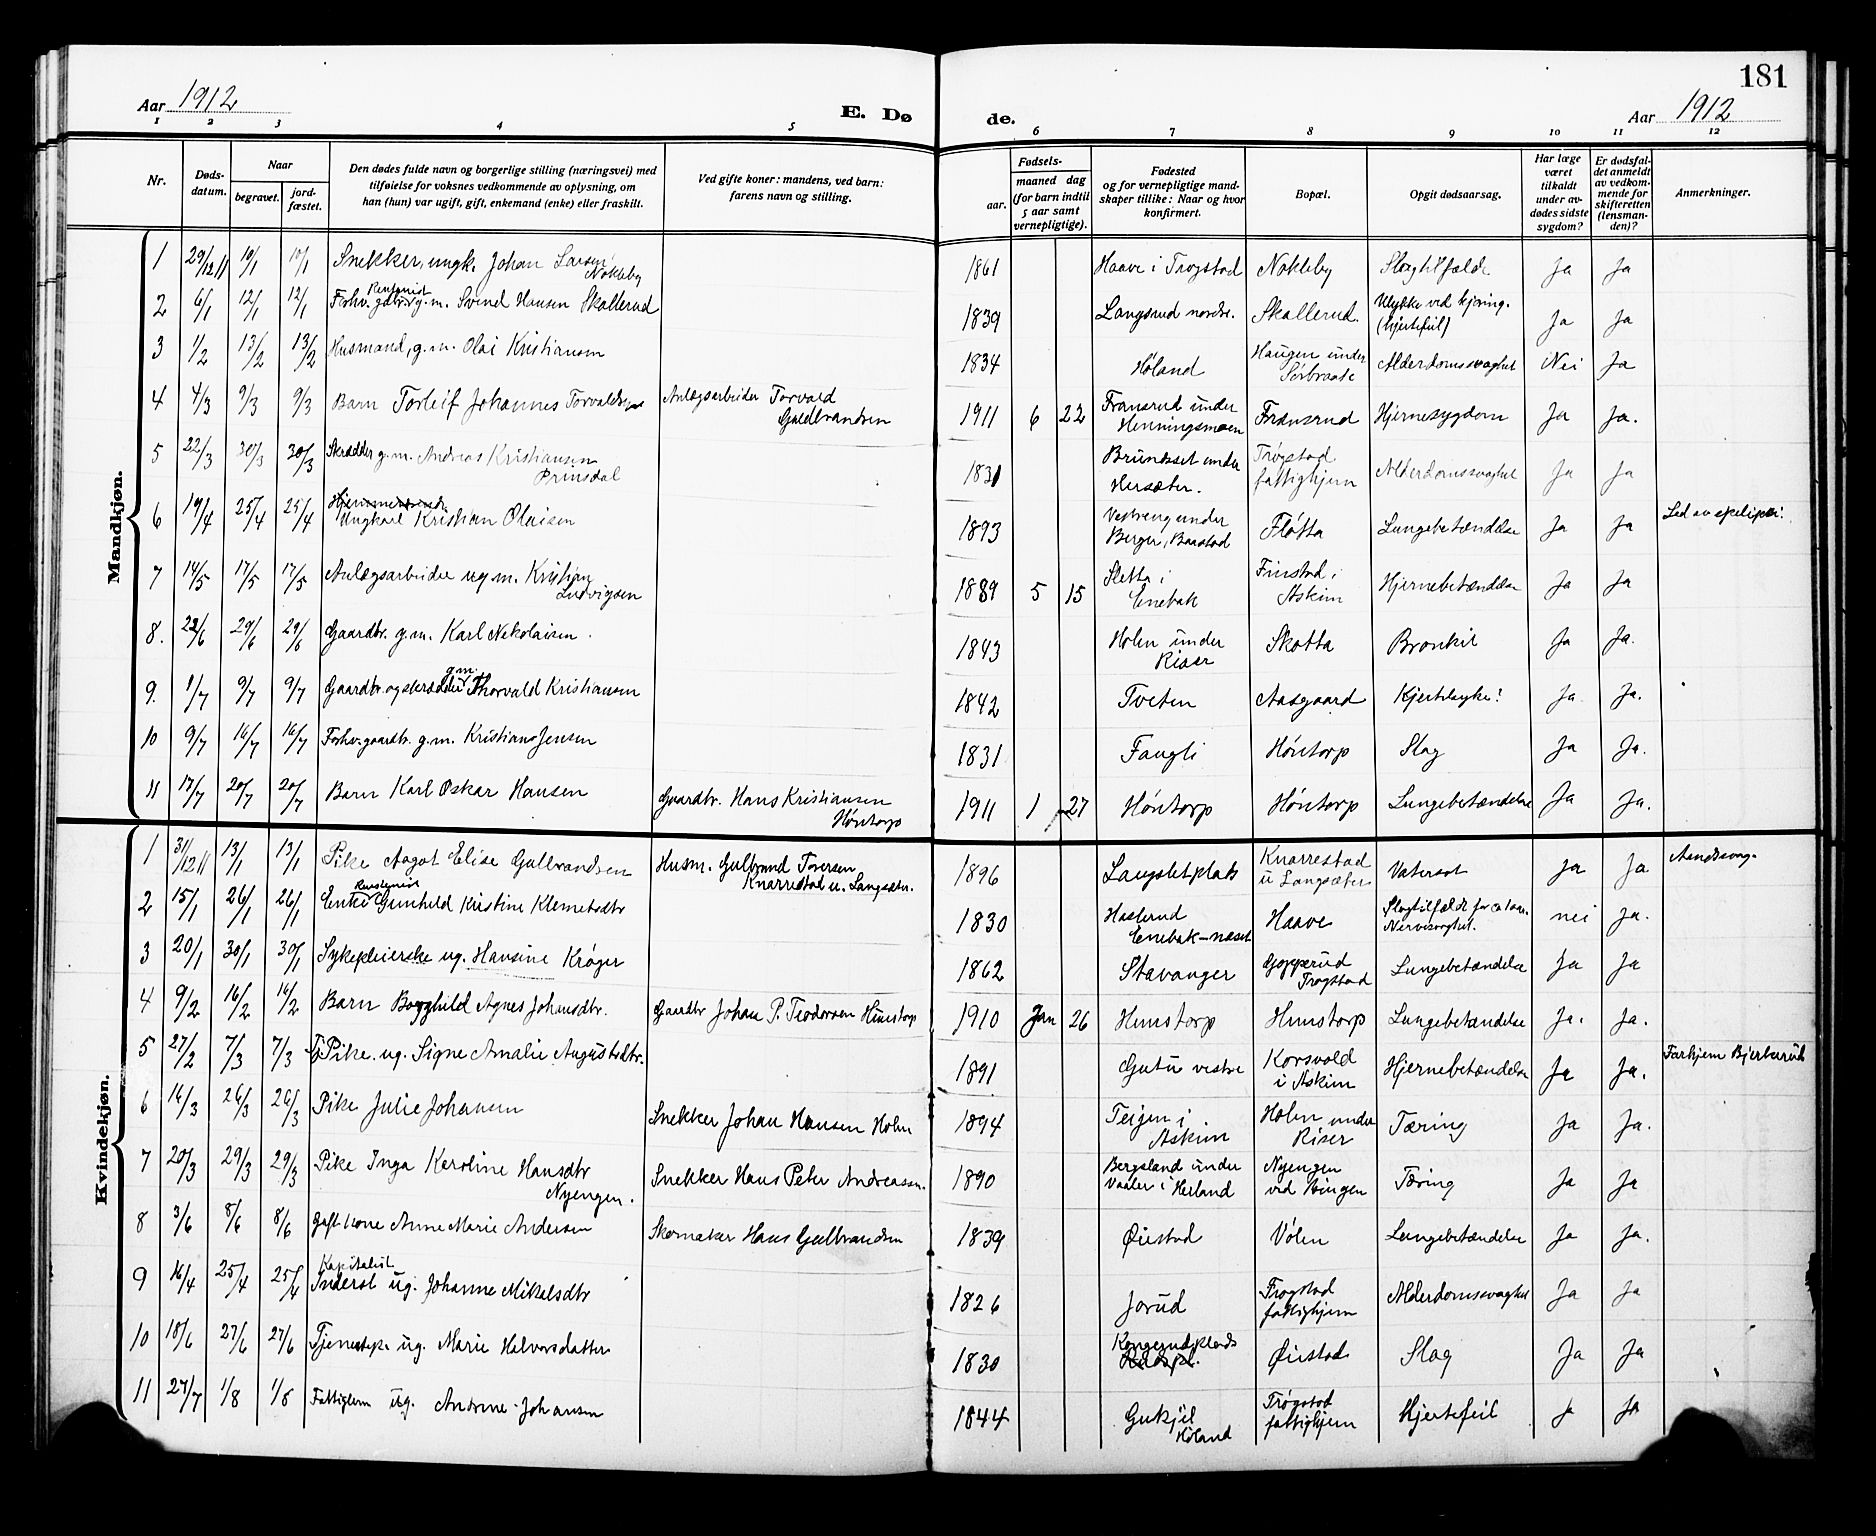 181
Aar 1912
E. Dø
de.
Aar 1912
1 2 3 4 5 6 7 8 9 10 11 12
Nr.
Døds-
datum.
Naar
begravet.
jord-
fæstet.
Den dødes fulde navn og borgerlige stilling (næringsvei) med
tilføielse for voksnes vedkommende av oplysning, om
han (hun) var ugift, gift, enkemand (enke) eller fraskilt.
Ved gifte koner: mandens, ved barn:
farens navn og stilling.
Fødsels-
aar.
maaned dag
(for barn indtil
5 aar samt
vernepligtige).
Fødested
og for vernepligtige mand-
skaper tillike: Naar og hvor
konfirmert.
Bopæl.
Opgit dødsaarsag.
Har læge
været
tilkaldt
under av-
dødes sidste
sygdom?
Er dødsfal-
det anmeldt
av vedkom-
mende for
skifteretten
(lensman-
den)?
Anmerkninger.
Mandkjøn.
1 29/12 11 10/1 10/1 Snekker, ungk. Johan Larsen Nokleby 1861 Haave i Trogstad Nokleby Slagtilfælde Ja Ja
2 6/1 12/1 12/1 Forhv. gaardbr. Rentenist g.m. Svend Hansen Skallerud 1839 Langsrud nordre. Skallerud. Ulykke ved kjøring. (hjertefeil) Ja Ja
3 1/2 13/2 13/2 Husmand, g.m. Olai Kristiansen 1834 Høland Haugen under Sørbraate Alderdomssvaghet Nei Ja
4 4/3 9/3 9/3 Barn Torleif Johannes Torvaldsen Anlægsarbeider Torvald Guldbrandsen 1911 6 22 Fransrud under Henningsmoen Fransrud Hjernesygdom Ja Ja.
5 22/3 30/3 30/3 Skrædder g.m. Andreas Kristiansen Prinsdal 1831 Brunesset under Hersæter. Trøgstad fattighjem Alderdomssvaghet Ja Ja
6 19/4 25/4 25/4 Ungkarl Kristian Olaisen 1893 Vestreng under Berger, Baastad Fløtta Lungebetændelse Ja Ja Led av epelipsi.
7 14/5 17/5 17/5 Anlægsarbeider ug m. Kristian Ludvigsen 1889 5 15 Sletta i Enebak Finstad i Askim Hjernebetændelse Ja Ja
8. 22/6 29/6 29/6 Gaardbr. g.m. Karl Nekolaisen. 1843 Holen under Riser Skotta Bronkit Ja Ja.
9. 1/7 9/7 9/7 Gaardbr. og skrædder g.m. Thorvald Kristiansen 1842 Tveten Aasgaard Hjertelyke! Ja Ja.
10 9/7 16/7 16/7 Forhv. gaardbr. g.m. Kristians Jensen 1831 Fangli Høntorp Slag Ja Ja.
11 17/7 20/7 20/7 Barn Karl Oskar Hansen Gaardbr. Hans Kristiansen Høntorp 1911 1 27 Høntorp Høntorp Lungebetændelse Ja Ja.
Kvindekjøn.
1 31/12 11 13/1 13/1 Pike Aagot Elise Gulbrandsen Husm. Gulbrand Toversen Knarrestad u. Langsæter. 1896 Langsletplads Knarrestad u Langsæter Vatersot Ja Ja Aandssvag.
2 15/1 26/1 26/1 Enke Rentenist Gunhild Kristine Klemetsdtr 1830 Haslerud Enebak-næset Haave Slagtilfælde for ca 1 aar. Nervesvaghet. nei Ja.
3 20/1 30/1 30/1 Sykepleierske ug. Hansine Krøger 1862 Stavanger Gopperud Trøgstad Lungebetændelse Ja Ja
4 9/2 16/2 16/2 Barn Borghild Agnes Johansdtr. Gaardbr Johan P. Teodorsen Himstorp 1910 Jan 26 Himstorp Himstorp Lungebetændelse Ja. Ja.
5 27/2 7/3 7/3 Pike. ug. Signe Amalie Augustsdtr. 1891 Gutu vestre Korsvold i Askim Hjernebetændelse Ja Ja. Farhjem Bjerkerud
6 14/3 26/3 26/3 Pike Julie Johansen Snekker Johan Hansen Holen 1894 Teigen i Askim Holen under Riser Tæring Ja Ja.
7 20/3 29/3 29/3 Pike Inga Karoline Hansdtr Nyengen. Snekker Hans Peter Andreassen. 1890 Bergsland under Vaaler i Herland Nyengen ved Bingen Tæring Ja Ja
8 3/6 8/6 8/6 Gift kone Anne Marie Andersen Skomaker Hans Gulbrandsen 1839 Øiestad Vólen Lungebetændelse Ja Ja.
9 16/4 25/4 25/4 Kapitalist Inderst ug. Johanne Mikelsdtr 1826 Jorud Trogstad fattighjem Alderdomssvaghet Ja Ja
10 18/6 27/6 27/6 Tjenestepi. ug. Marie Halvorsdatter 1830 Kongerudplads Øiestad Slag Ja Ja
11 27/7 1/8 1/8 Fattiglem ug. Andrine Johansen 1844 Gukjil Høland Trøgstad fattighjem Hjertefeil Ja Ja